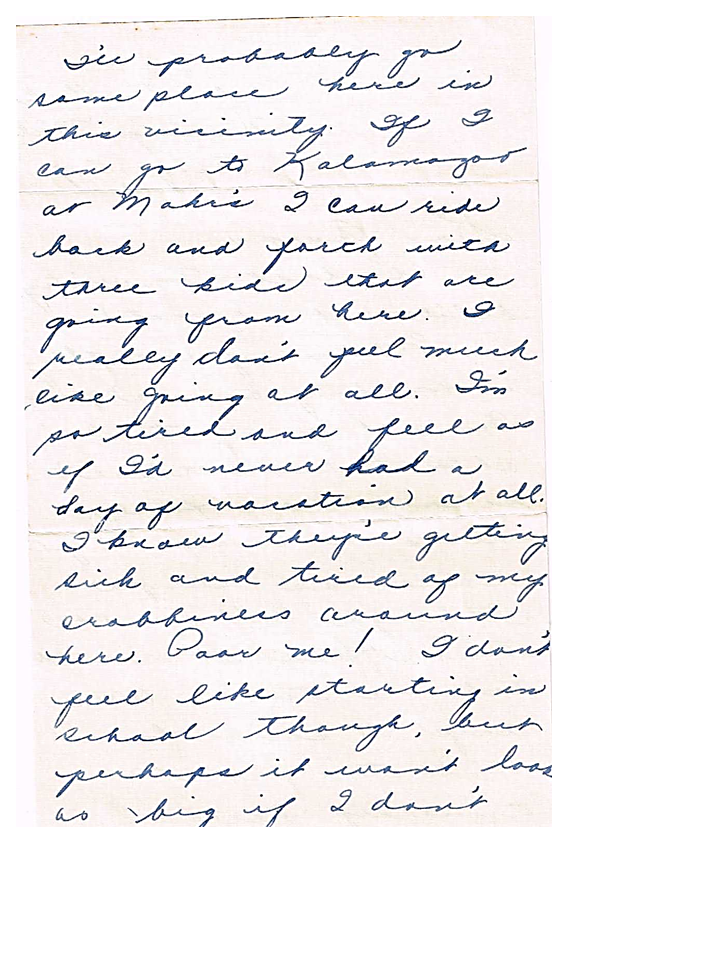 I'll probably go
some place here in
this vicinity. If I
can go to Kalamazoo
at I can ride
back and forth with
three kids that are
going from here. I
really don't feel much
like going at all. I'm
so tired and feel as
if I'd never had a
day of vacation at all.
I know they're getting
sick and tired of my
crabbiness around
here. Poor me! I don't
feel like starting in
school though, but
perhaps it won't look
so big if I don't